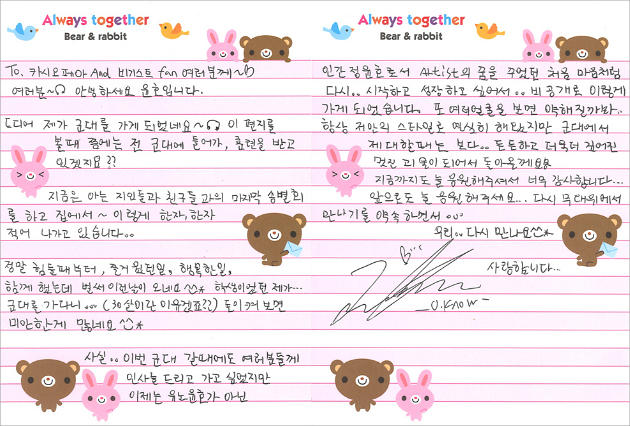 Always together
Bear & rabbit
To. 카시오페아 And 비기스트 fan 여러분께~
여러분~ 안녕하세요 윤호입니다.
드디어 제가 군대를 가게 되었네요~ 이 편지를
볼때 쯤에는 전 군대에 들어가, 훈련을 받고
있겠지요??
지금은 아는 지인들과 친구들과의 마지막 송별회
를 하고 집에서~ 이렇게 한자, 한자
적어 나가고 있습니다..
정말 힘들때부터, 즐거웠던일, 행복한일,
함께 했는데 벌써 이런날이 오네요^^* 학생이었던 제가...
군대를 가다니... (30살이란 이유겠죠??) 돌이켜 보면
미안한게 많네요^^*
사실.. 이번 군대 갈때에도 여러분들께
인사를 드리고 가고 싶었지만
이제는 유노윤호가 아닌
Always together
Bear & rabbit
인간 정윤호로서 Artist의 꿈을 꾸었던 처음 마음처럼
다시.. 시작하고 성장하고 싶어서.. 비공개로 이렇게
가게 되었습니다. 또 여러분들을 보면 약해질까봐..
항상 저만의 스타일로 열심히 해왔지만 군대에서
제대할때는 보다.. 튼튼하고 더욱더 짙어진
멋진 리더이 되어서 돌아올께요
지금까지도 늘 응원해주셔서 너무 감사합니다...
앞으로도 늘 응원해주세요... 다시 무대위에서
만나기를 약속하면서...
우리.. 다시 만나요^^*
사랑합니다...
-U.KNOW-